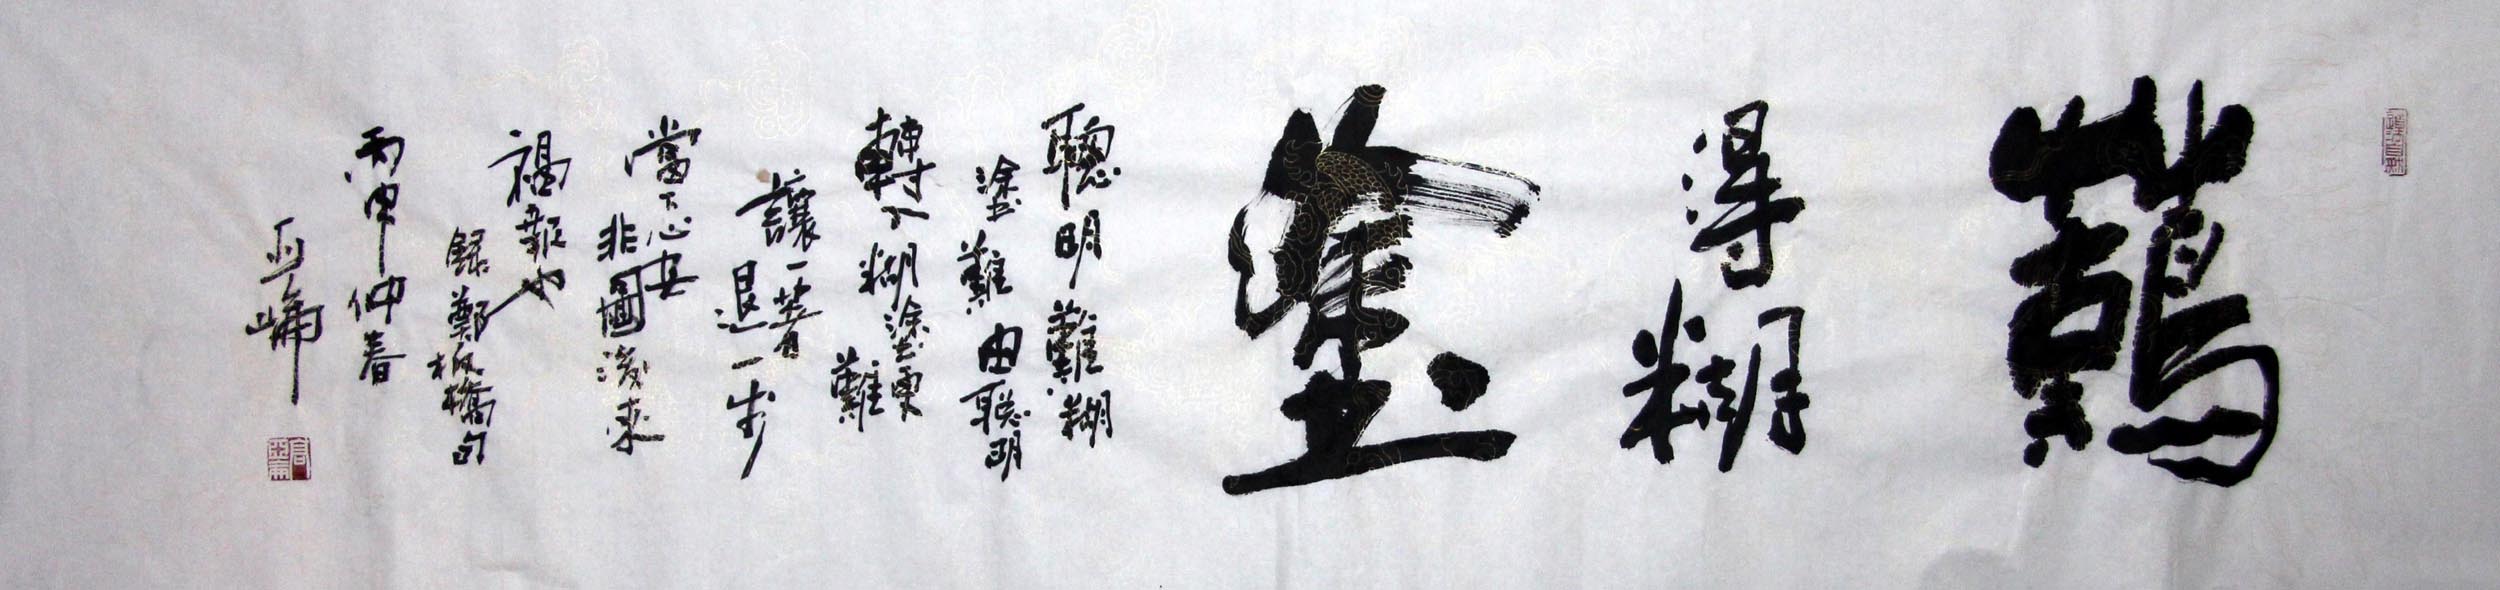 難
得糊
塗
聰明難糊
塗難由聰明
轉入糊塗更
難
讓一著
退一步
當下心安
非圖後來
福報也
録鄭板橋句
丙申仲春
亞